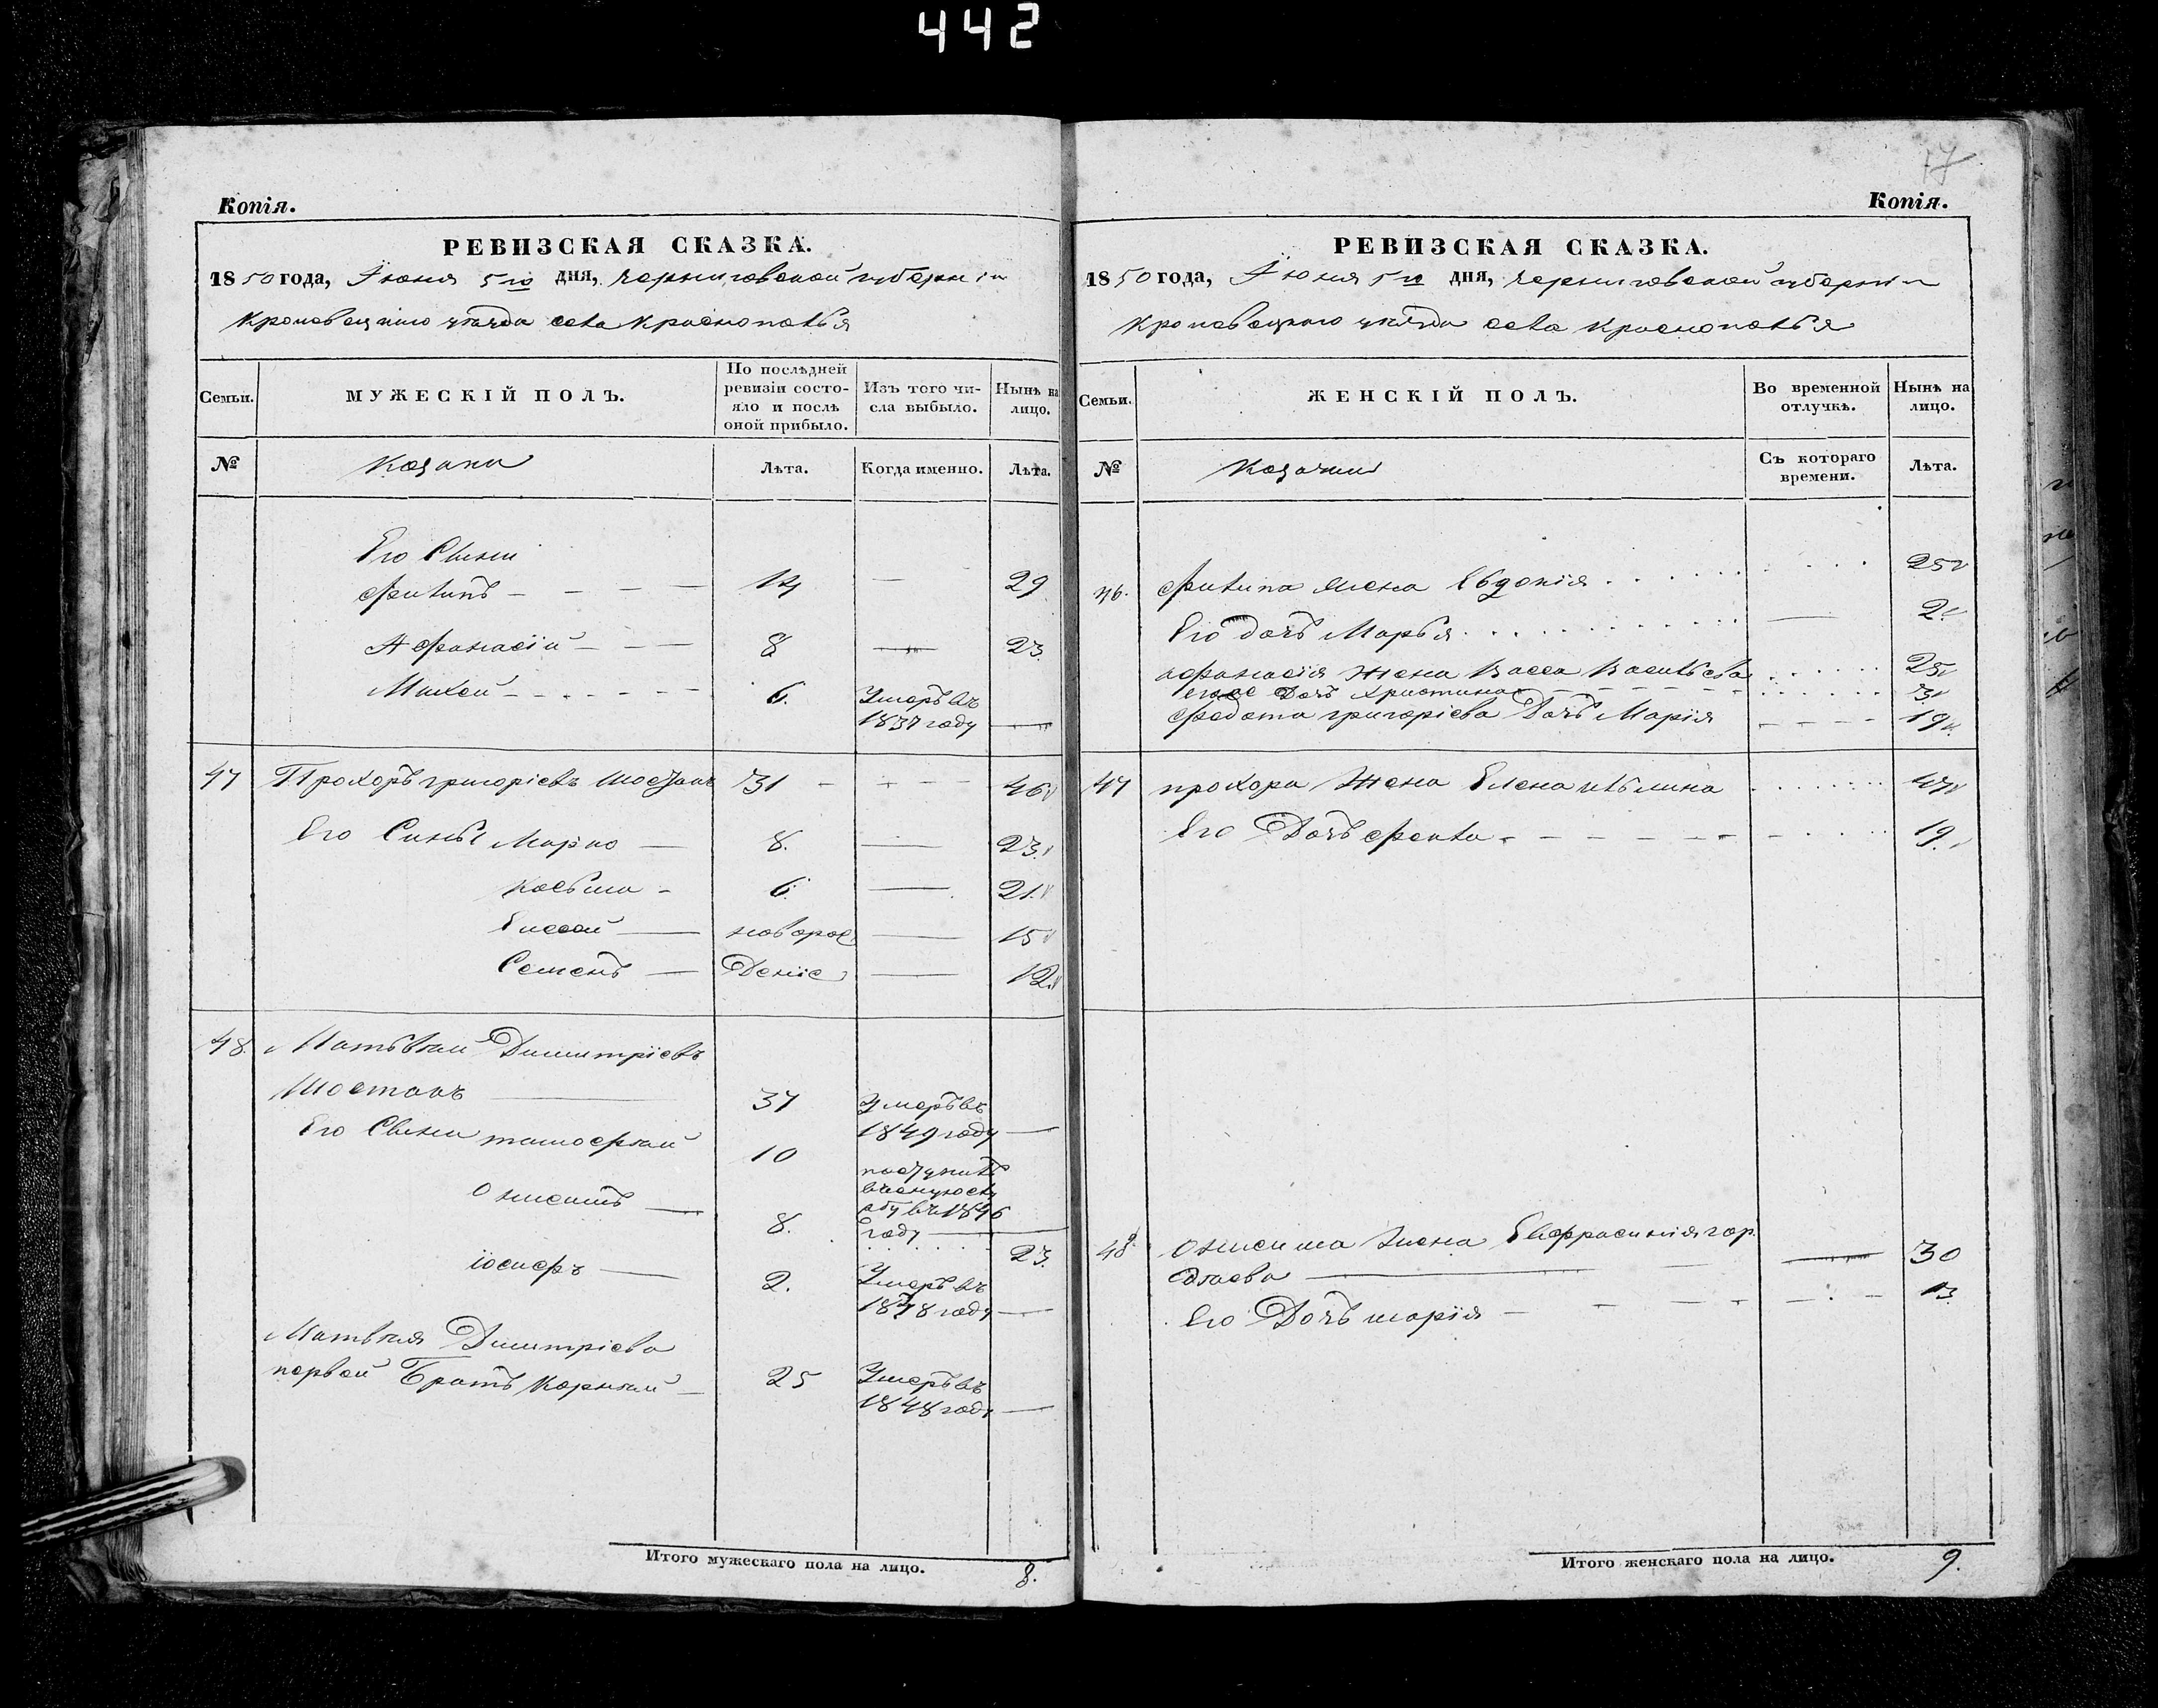 442
Копія.
РЕВИЗСКАЯ СКАЗКА.
1850 года, Іюня 5го дня, Черниговской губерніи
Кролевецкаго уѣзда села Краснополья
Семьи.
МУЖЕСКІЙ ПОЛЪ.
По послѣдней ревизіи состояло и послѣ оной прибыло.
Изъ того числа выбыло.
Нынѣ на лицо.
№
Козаки
Лѣта.
Когда именно.
Лѣта.
Его Сыни
Филипъ 14 — 29
Афанасій 8 — 23
Михей 6. Умеръ въ
1837 году —
47 Прохоръ григоріевъ Шостакъ 31 — 46
Его Сины Марко — 8. — 23.
Косьма 6. — 21.
Елисей — новорож — 15
Семенъ — Деніе — 12
48. Матвѣй Димитріевъ
Шостакъ — 37 Умеръ въ
1849 году —
Его Сыни тимофѣй 10 поступилъ
въ 1846
году —
Онисимъ — 8. 23.
іосифъ — 2. Умеръ въ
1848 году —
Матвѣя Димитріева
первой Братъ Корнѣй — 25 Умеръ въ
1848 году —
Итого мужескаго пола на лицо. 8.
17
Копія.
РЕВИЗСКАЯ СКАЗКА.
1850 года, Іюня 5го дня, Черниговской губерніи
Кролевецкаго уѣзда села Краснополья
Семьи.
ЖЕНСКІЙ ПОЛЪ.
Во временной отлучкѣ.
Нынѣ на лицо.
№
Козачки
Съ котораго времени.
Лѣта.
46. Филипа жена Евдокія 25
Его дочь Марья 2
афанасія жена Васса Васильева 25
его Дочь Христина 3
Федота григоріева Дочь Марія 19
47 прохора жена Елена 47
Его Дочь Фекла 19.
48. Онисима жена Евфросинія гор
дѣева — 30
Его Дочь марія 13
Итого женскаго пола на лицо. 9.